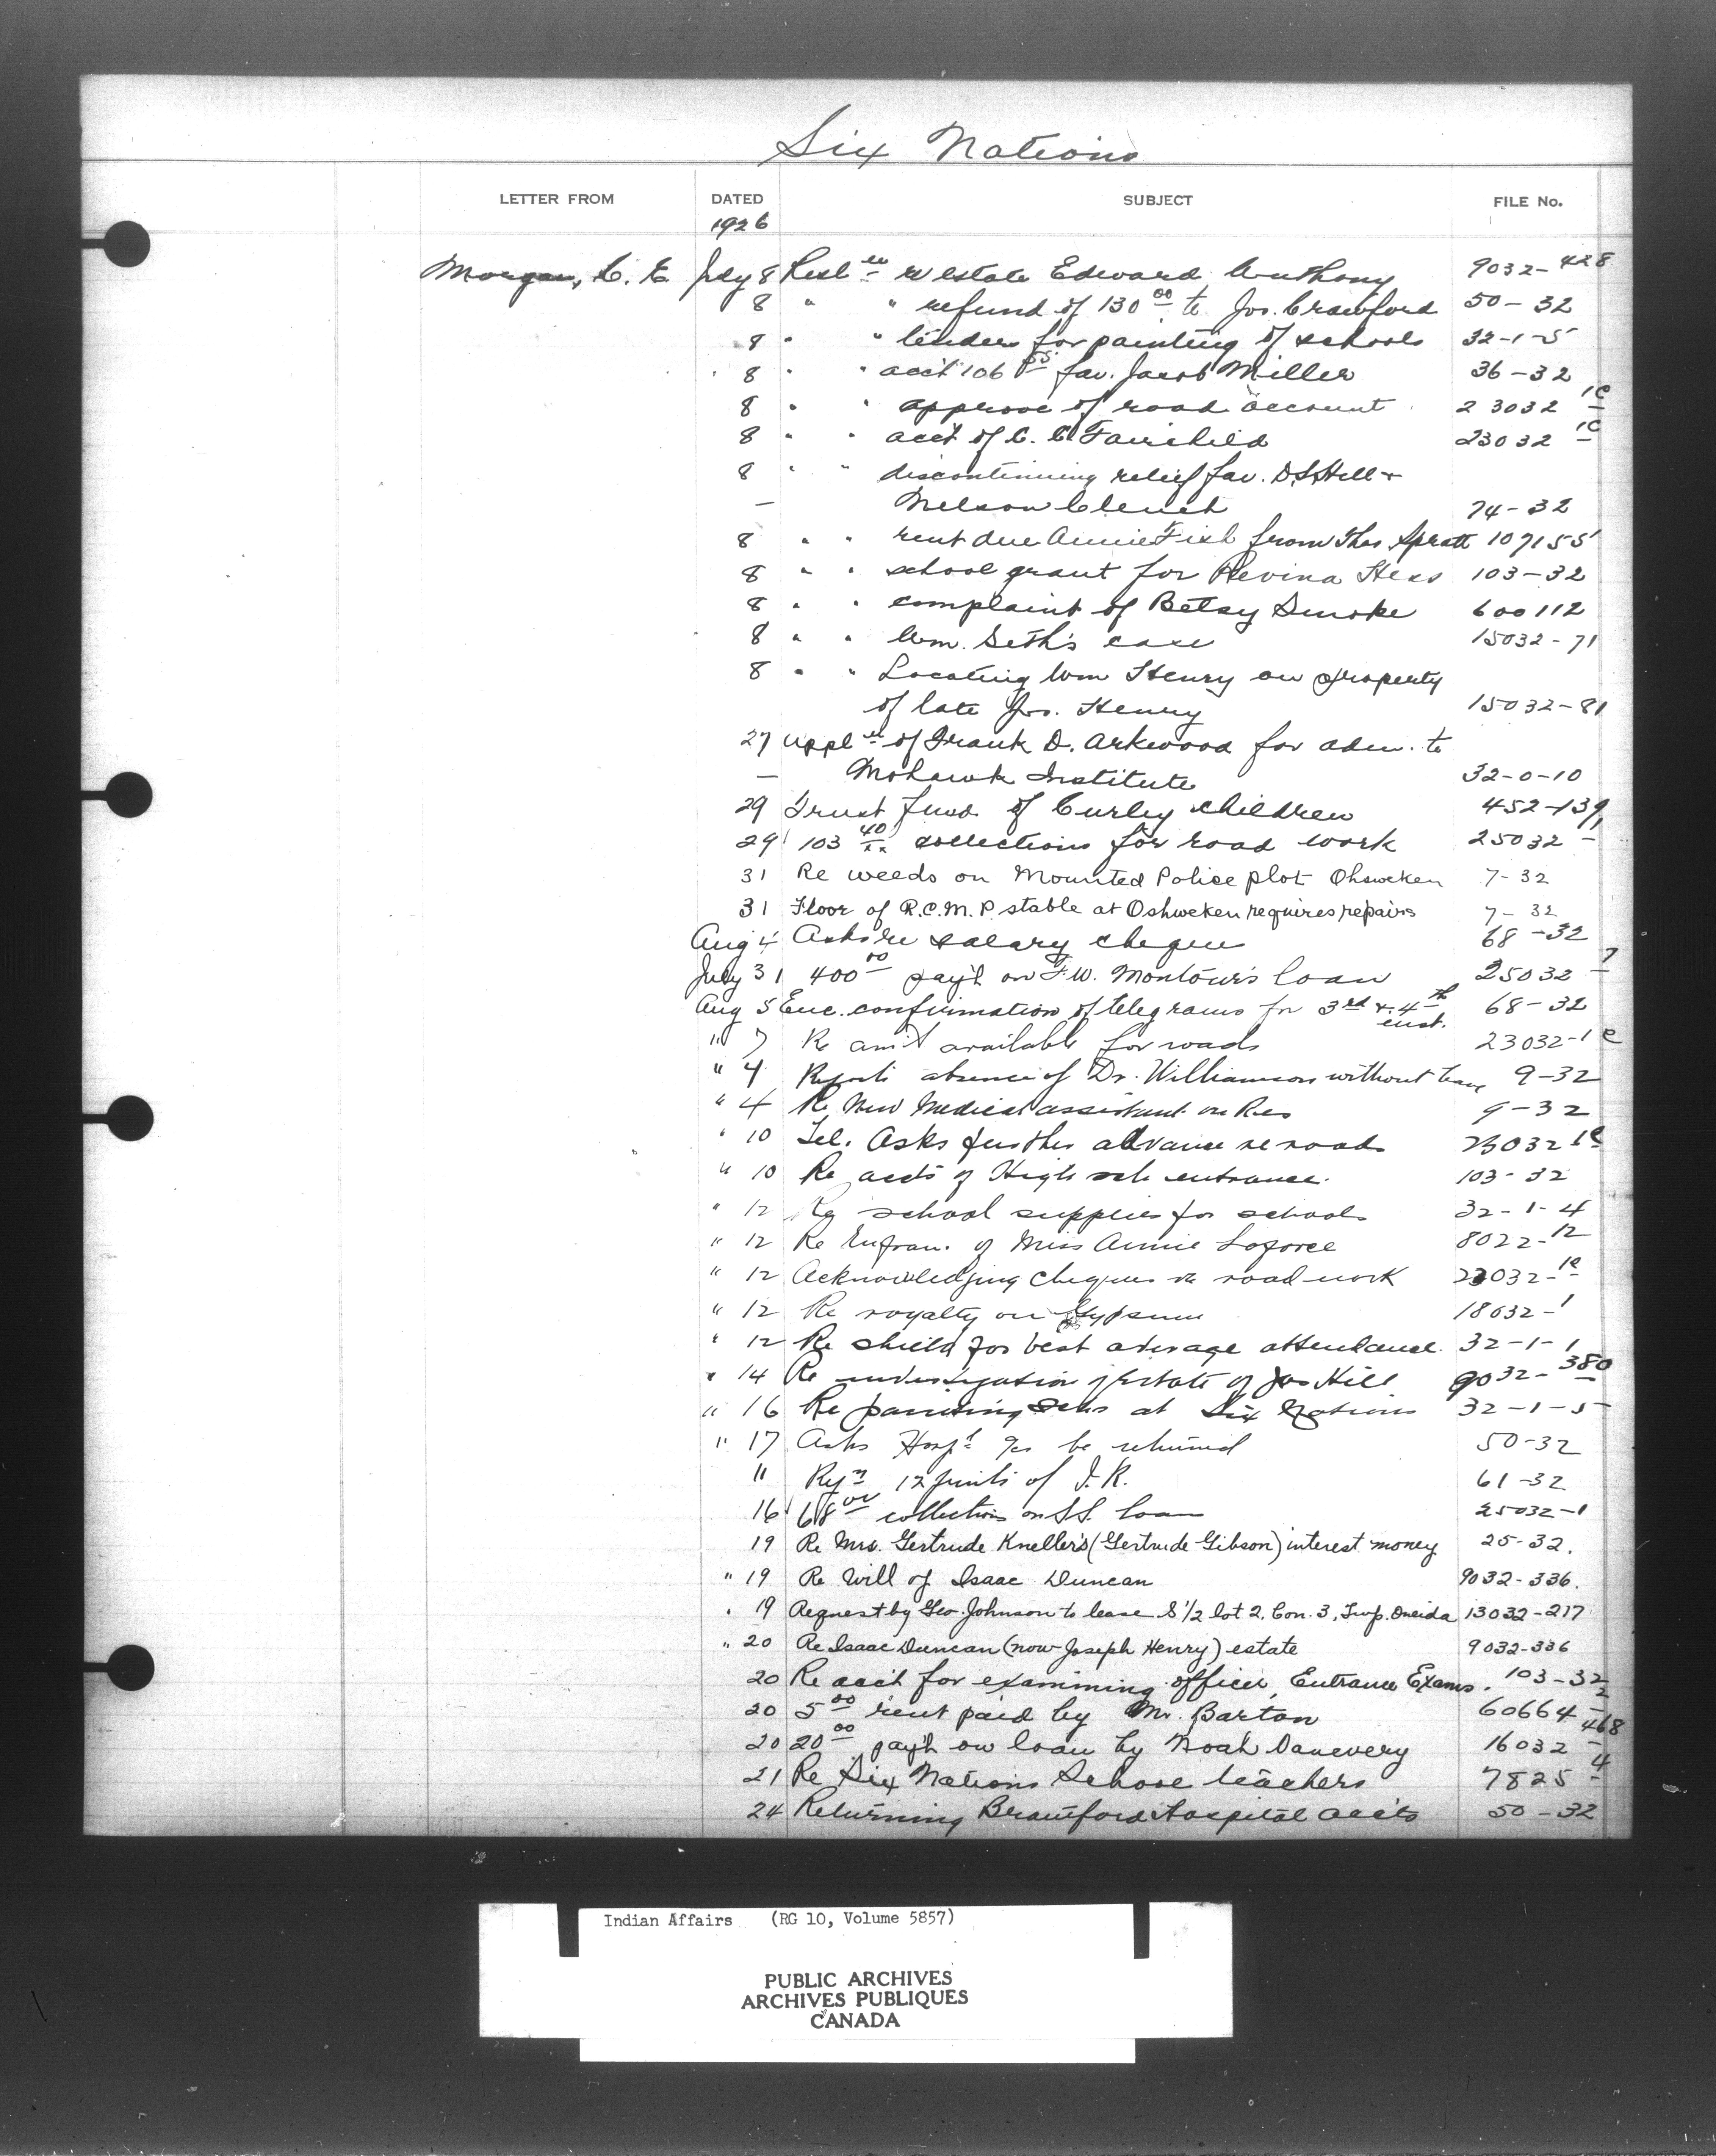 Six Nations
LETTER FROM DATED SUBJECT FILE No.
1926
Morgan, C. E. July 8 Resl en re estate Edward Anthony 9032-428
8 " " refund of 130 00 to Jos. Crawford 50-32
8 " " tenders for painting of schools 32-1-5
8 " " acct 106 fav. Jacob Miller 36-32
8 " " approve of road account 23032 1C
8 " " acct of C. C. Fairchild 23032 1C
8 " " discontinuing relief fav. D.S. Hill +
— Nelson Clench 74-32
8 " " rent due Annie Fish from Thos Spratt 107155
8 " " school grant for Hess 103-32
8 " " complaint of Betsy Smoke 600112
8 " " Wm. Seth's case 15032-71
8 " " Locating Wm Henry on property
of late Jos. Henry 15032-81
27 Appl en of Frank D. Arkwood for adm. to
— Mohawk Institute 32-0-10
29 Trust fund of Curley children 452-139
29 103 40 collections for road work 25032 1
31 Re weeds on Mounted Police plot Ohsweken 7-32
31 Floor of R.C.M.P. stable at Oshweken requires repairs 7-32
Aug 4 Asks re salary cheque 68-32
July 31 400 00 pay't on F.W. Montour's loan 25032 7
Aug 5 Enc. confirmation of telegrams for 3rd & 4th 68-32
inst.
" 7 Re am't available for roads 23032-1 c
" 4 Reports absence of Dr. Williamson without leave 9-32
" 4 Re New Medical assistant on Res 9-32
" 10 Tel. Asks further advance re roads 23032 1c
" 10 Re accts of High sch entrance. 103-32
" 12 Re school supplies for schools 32-1-4
" 12 Re Enfran. of Miss Annie Laforce 8022-12
" 12 Acknowledging cheques re road work 23032-1c
" 12 Re royalty on Gypsum 18032-1
" 12 Re shield for best average attendance. 32-1-1
" 14 Re investigation estate of Jas Hill 9032-380
" 16 Re painting schs at Six Nations 32-1-5
" 17 Asks Hosp'l be returned 50-32
" Rqn 12 of I.R. 61-32
16 68 00 collections on S.S. loan 25032-1
19 Re Mrs. Gertrude Kneller's (Gertrude Gibson) interest money 25-32.
" 19 Re Will of Isaac Duncan 9032-336.
" 19 Request by Geo. Johnson to lease S 1/2 lot 2, Con. 3, Twp. Oneida 13032-217
" 20 Re Isaac Duncan (now Joseph Henry) estate 9032-336
20 Re acct for examining officer, Entrance Exams. 103-32
20 5 00 rent paid by Mr. Barton 60664 2
20 20 00 pay't on loan by Noah Danevery 16032 468
21 Re Six Nations School teachers 7825 4
24 Returning Brantford Hospital acc'ts 50-32
Indian Affairs (RG 10, Volume 5857)
PUBLIC ARCHIVES
ARCHIVES PUBLIQUES
CANADA